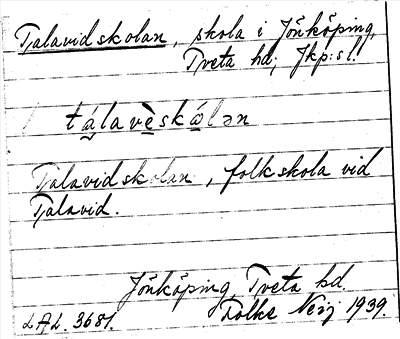 Talavidskolan, skola i Jönköping,
Tveta hd; Jkp:s l.
tálavèskálən
Talavidskolan, folkskola vid
Talavid.
Jönköping, Tveta hd.
LAL. 3681. Folke Neij 1939.